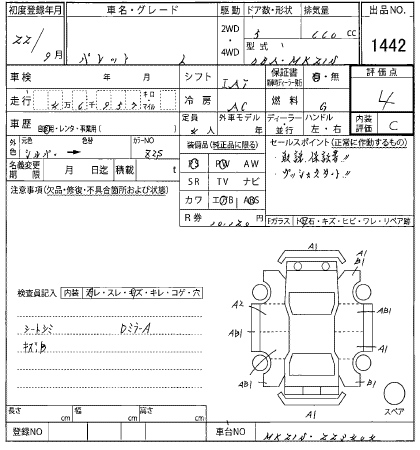 初度登録年月 車名・グレード 駆動 ドア数・形状 排気量 出品NO.
22/9月 パレット 2WD・4WD 5 660 cc 1442
型式 DBA-MK21S
車検 年 月 シフト IAT 保証書 有・無 評価点
走行 冷房 AC 燃料 G 4
車歴 自家用・レンタ・事業用( ) 定員 4人 外車モデル年 ディーラー・並行 ハンドル 左・右 内装評価 C
外色 元色 シルバー 色替 カラーNO Z2S
装備品(純正品に限る)
セールスポイント(正常に作動するもの)
・取説、保証書!!
・プッシュスタート!!
名義変更期限 月 日迄 積載 t
PS PW AW
SR TV ナビ
カワ エアB ABS
注意事項(欠品・修復・不具合箇所および状態)
R券 円
Fガラス 飛石・キズ・ヒビ・ワレ・リペア跡
A1
A1
B1
A2
AB1
AB1
A1
AB1
B1
A1
A1
スペア
検査員記入 内装 ヨゴレ・スレ・キズ・キレ・コゲ・穴
シートシミ DミラーA
キズB
長さ cm 幅 cm 高さ cm
登録NO 車台NO MK21S-